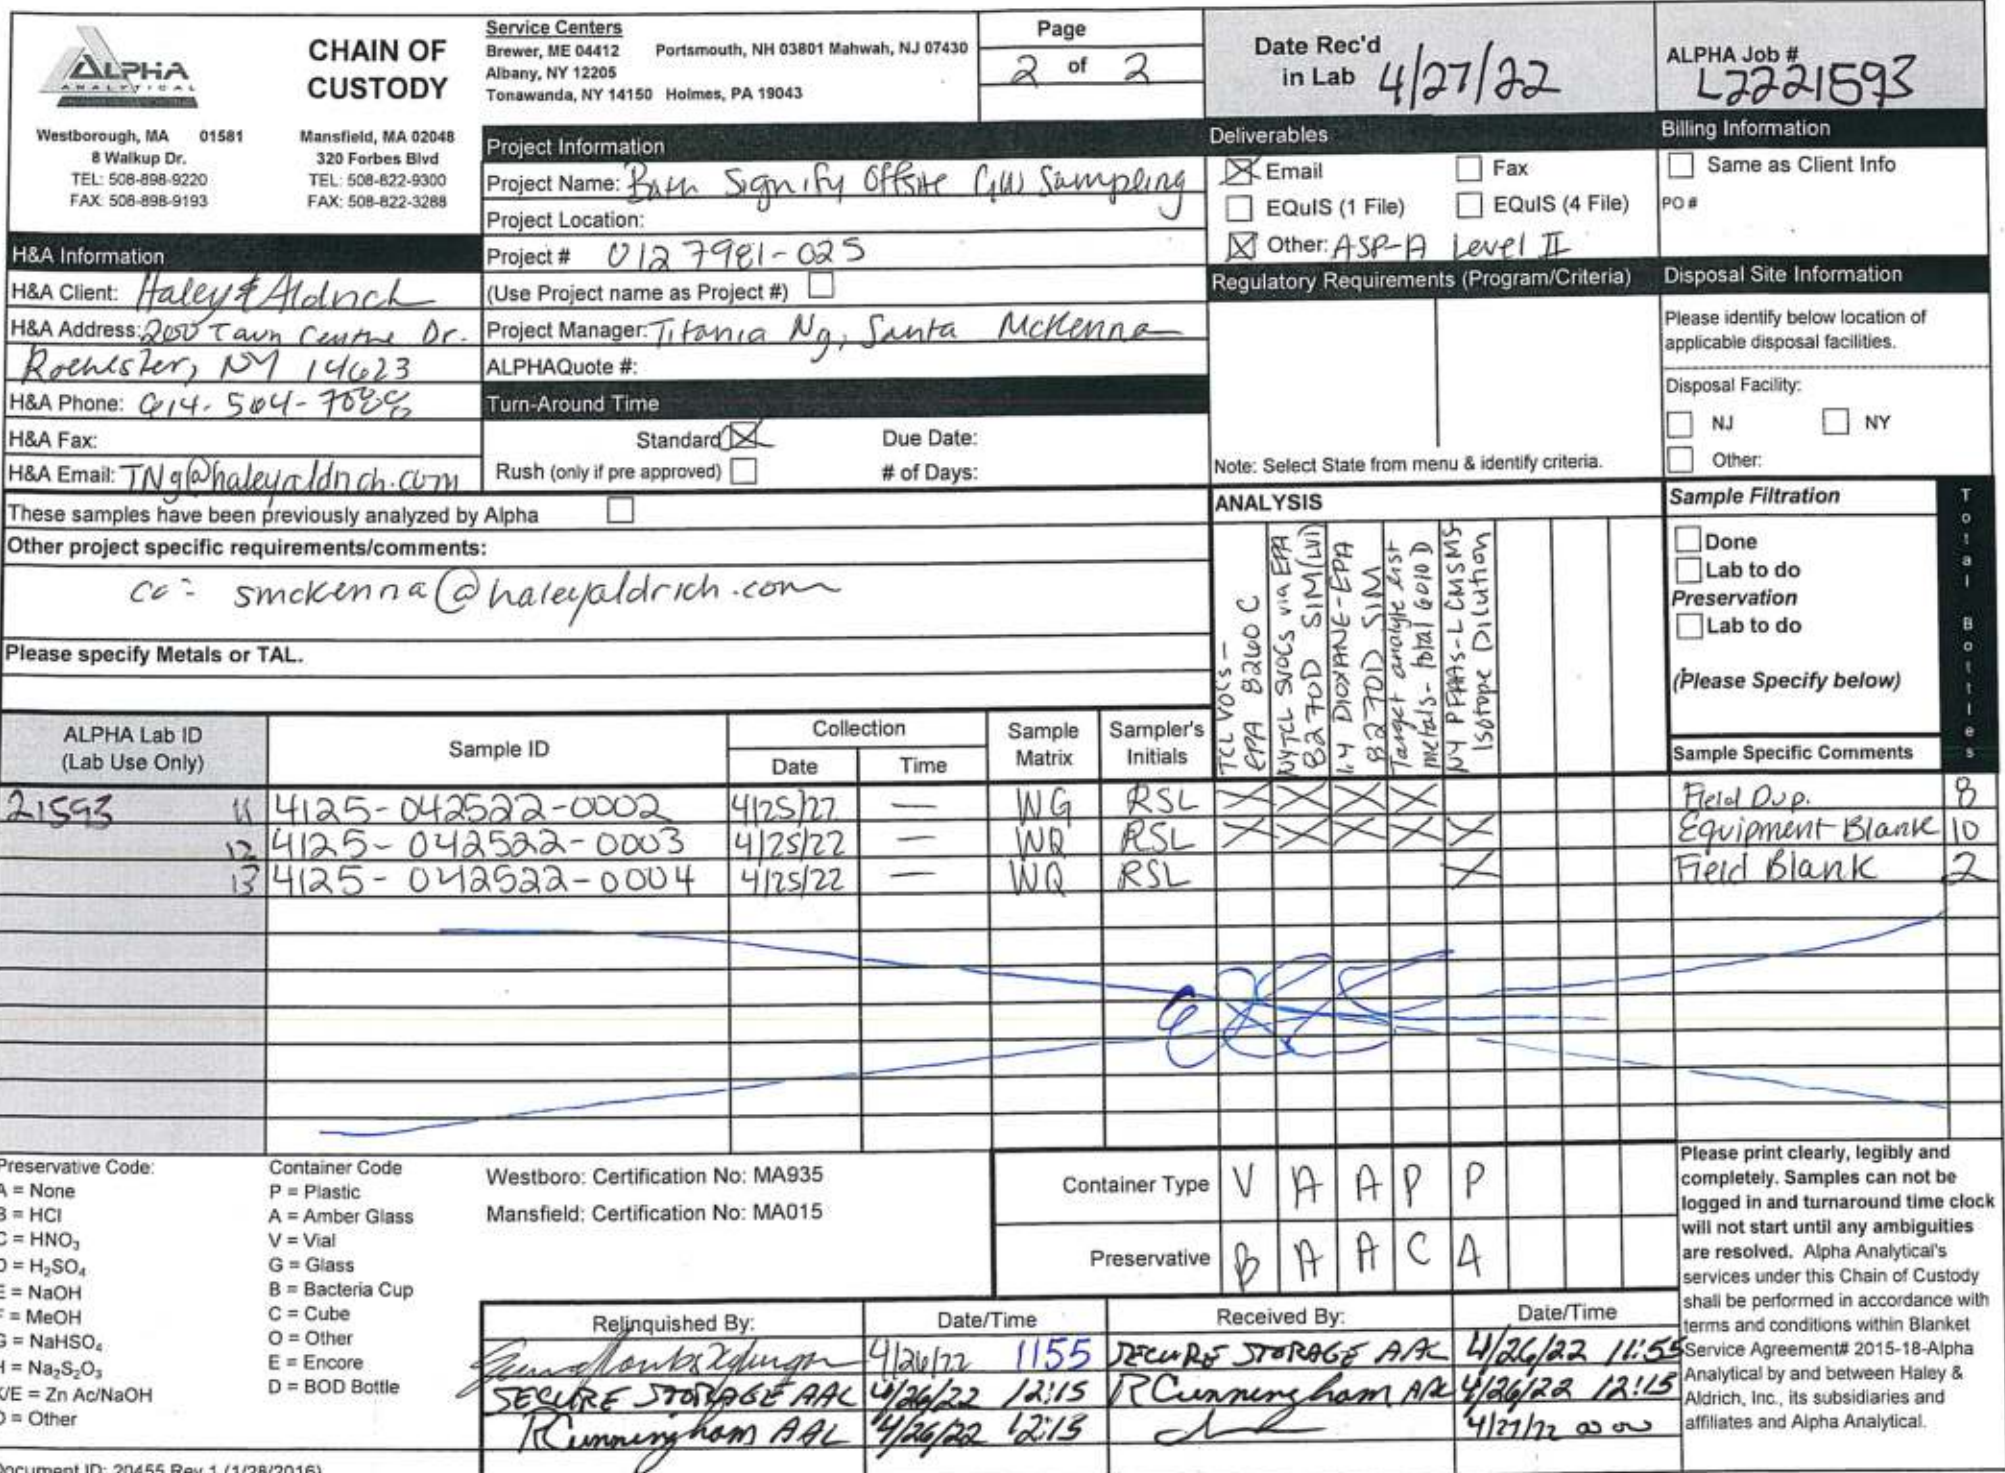 ALPHA
ANALYTICAL
CHAIN OF
CUSTODY
Westborough, MA 01581
8 Walkup Dr.
TEL: 508-898-9220
FAX: 508-898-9193
Mansfield, MA 02048
320 Forbes Blvd
TEL: 508-822-9300
FAX: 508-822-3288
Service Centers
Brewer, ME 04412 Portsmouth, NH 03801 Mahwah, NJ 07430
Albany, NY 12205
Tonawanda, NY 14150 Holmes, PA 19043
Page
2 of 2
Date Rec'd
in Lab 4/27/22
ALPHA Job #
L2221593
H&A Information
H&A Client: Haley & Aldrich
H&A Address: 200 Town Centre Dr.
Rochester, NY 14623
H&A Phone:
H&A Fax:
H&A Email: TNg@haleyaldrich.com
Project Information
Project Name: Bath Signify Offsite GW Sampling
Project Location:
Project # 0127981-025
(Use Project name as Project #)
Project Manager: Titania Ng, Santa McKenna
ALPHAQuote #:
Turn-Around Time
Standard Due Date:
Rush (only if pre approved) # of Days:
Deliverables
Email Fax
EQuIS (1 File) EQuIS (4 File)
Other: ASP-A Level II
Regulatory Requirements (Program/Criteria)
Note: Select State from menu & identify criteria.
Billing Information
Same as Client Info
PO #
Disposal Site Information
Please identify below location of
applicable disposal facilities.
Disposal Facility:
NJ NY
Other:
These samples have been previously analyzed by Alpha
Other project specific requirements/comments:
cc: smckenna@haleyaldrich.com
Please specify Metals or TAL.
ANALYSIS
TCL VOCs -
EPA 8260 C
NYTCL SVOCs via EPA
8270D SIM (LVI)
1,4 DIOXANE-EPA
8270D SIM
Target analyte list
metals- total 6010 D
NY PFAAs-LCMSMS
Isotope Dilution
Sample Filtration
Done
Lab to do
Preservation
Lab to do
(Please Specify below)
Total Bottles
ALPHA Lab ID
(Lab Use Only)
Sample ID
Collection
Date Time
Sample
Matrix
Sampler's
Initials
Sample Specific Comments
21593 11 4125-042522-0002 4/25/22 — WG RSL X X X X Field Dup. 8
12 4125-042522-0003 4/25/22 — WQ RSL X X X X X Equipment Blank 10
13 4125-042522-0004 4/25/22 — WQ RSL X Field Blank 2
Preservative Code:
A = None
B = HCl
C = HNO3
D = H2SO4
E = NaOH
F = MeOH
G = NaHSO4
H = Na2S2O3
K/E = Zn Ac/NaOH
O = Other
Container Code
P = Plastic
A = Amber Glass
V = Vial
G = Glass
B = Bacteria Cup
C = Cube
O = Other
E = Encore
D = BOD Bottle
Westboro: Certification No: MA935
Mansfield: Certification No: MA015
Container Type V A A P P
Preservative B A A C A
Relinquished By: Date/Time Received By: Date/Time
4/26/22 1155 SECURE STORAGE AAL 4/26/22 11:55
SECURE STORAGE AAL 4/26/22 12:15 RCunningham AAL 4/26/22 12:15
RCunningham AAL 4/26/22 12:15 4/27/22 00 00
Please print clearly, legibly and
completely. Samples can not be
logged in and turnaround time clock
will not start until any ambiguities
are resolved. Alpha Analytical's
services under this Chain of Custody
shall be performed in accordance with
terms and conditions within Blanket
Service Agreement# 2015-18-Alpha
Analytical by and between Haley &
Aldrich, Inc., its subsidiaries and
affiliates and Alpha Analytical.
Document ID: 20455 Rev 1 (1/28/2016)